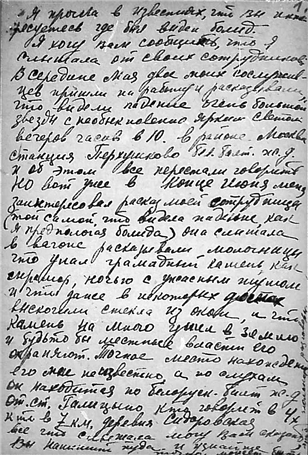 Я прочла в известиях, что вы инте
ресуетесь где был виден болид.
Я хочу Вам сообщить, что я
слышала от своих сотрудников
В середине Мая двое моих сослужив
цев пришли на работу и рассказывали,
что видели падение очень большой
звезды с необыкновенно ярким светом
вечером часов в 10. в районе Москвы
станция Перхушково Бел. Балт. ж.д.
и об этом все перестали говорить
Но вот уже в конце Июня меня
заинтересовал рассказ моей сотрудницы
(той самой, что видела падение как
я предпологаю болида) она слышала
в вагоне разговаривали молочницы
что упал громадный камень, как
ночью с ужасным шумом
и что даже в некоторых домах
выскочили стекла из окон и что
камень на много ушел в землю
и будьто бы местные власти его
охраняют. Точное место нахождение
его мне неизвестно, а по слухам
он находится по Белорусс. Балт ж-д
от. ст. Голицыно кто говорит в 4х
кто в 7 км. деревня Сидоровская
все что слышала могу Вам сказать
Вы напишите куда узнайте